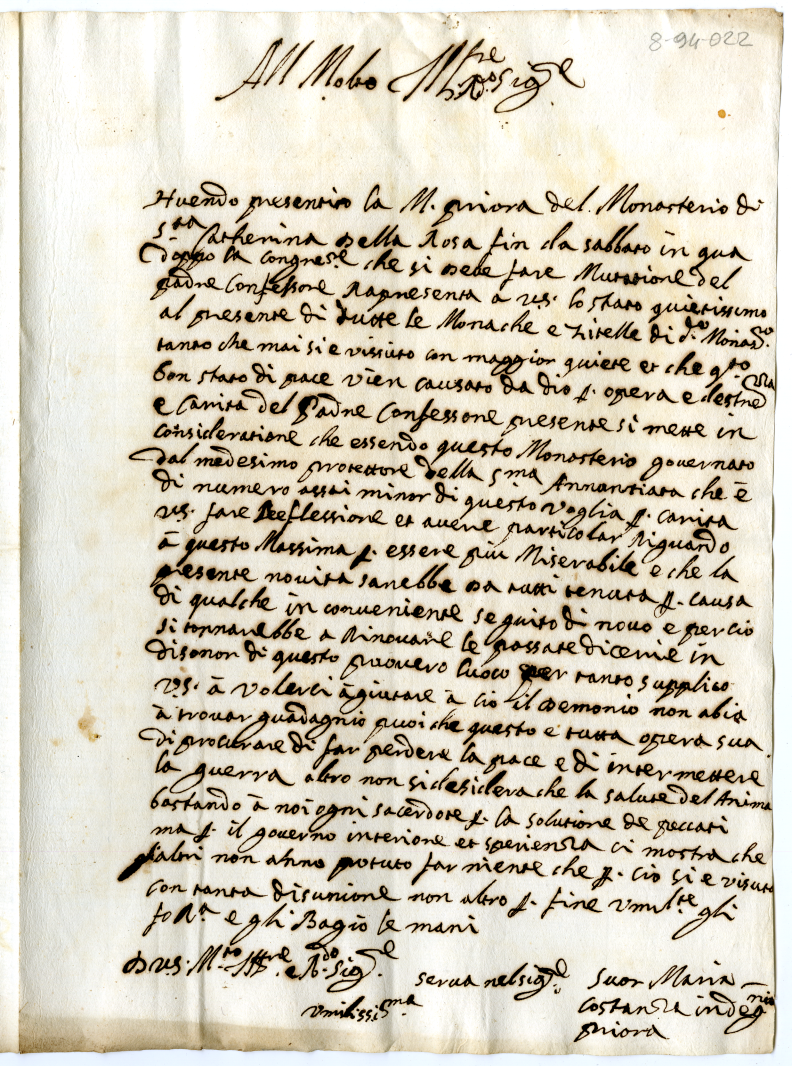 8-94-022
All Molto Ill^tre
e R.^do Sig^re
Hauendo presentito la M. priora del Monasterio di
S^ta Catherina della Rosa fin da sabbato in qua
doppo la Congre^ne che si deve fare Mutatione del
padre Confessore Rapresenta a V.S. lo stato quietissimo
al presente di tutte le Monache e Zitelle di d^o Monas^o
tanto che mai si e vissuto con maggior quiete et che q^to
bon stato di pace vien causato da dio p. opera e destrezza
e Carita del padre Confessore presente si mette in
consideratione che essendo questo Monasterio governato
dal medesimo protettore della S^ma Annantiata che è
di numero assai minor di questo voglia p. carita
V.S. fare Reflessione et avere particolar Riguardo
à questo Massima p. essere più Miserabile e che la
presente novita sarebbe da tutti tenuta p. causa
di qualche inconveniente seguito di novo e percio
si tornarebbe a Rinovare le passate dicerie in
disonor di questo povero luoco per tanto supplico
V.S. à volerci àgiutare à cio il Demonio non abia
à trovar guadagnio puoi che questo e tutta opera sua
di procurare di far perdere la pace e di intermettere
la guerra altro non si desidera che la salute del Anima
bastando à noi ogni sacerdote p. la solutione de peccati
ma p. il governo interione et sperienza ci mostra che
l'altri non anno potuto far niente che p. cio si e visuto
con tanta disunione non altro p. fine Vmil^te gli
fo R^a e gli Bagio le mani
D V.S. M^to Ill^tre e R^do Sig^re
serva nel Sig^re
Vmilissi^ma
Suor Maria
Costanza indeg^nia
priora